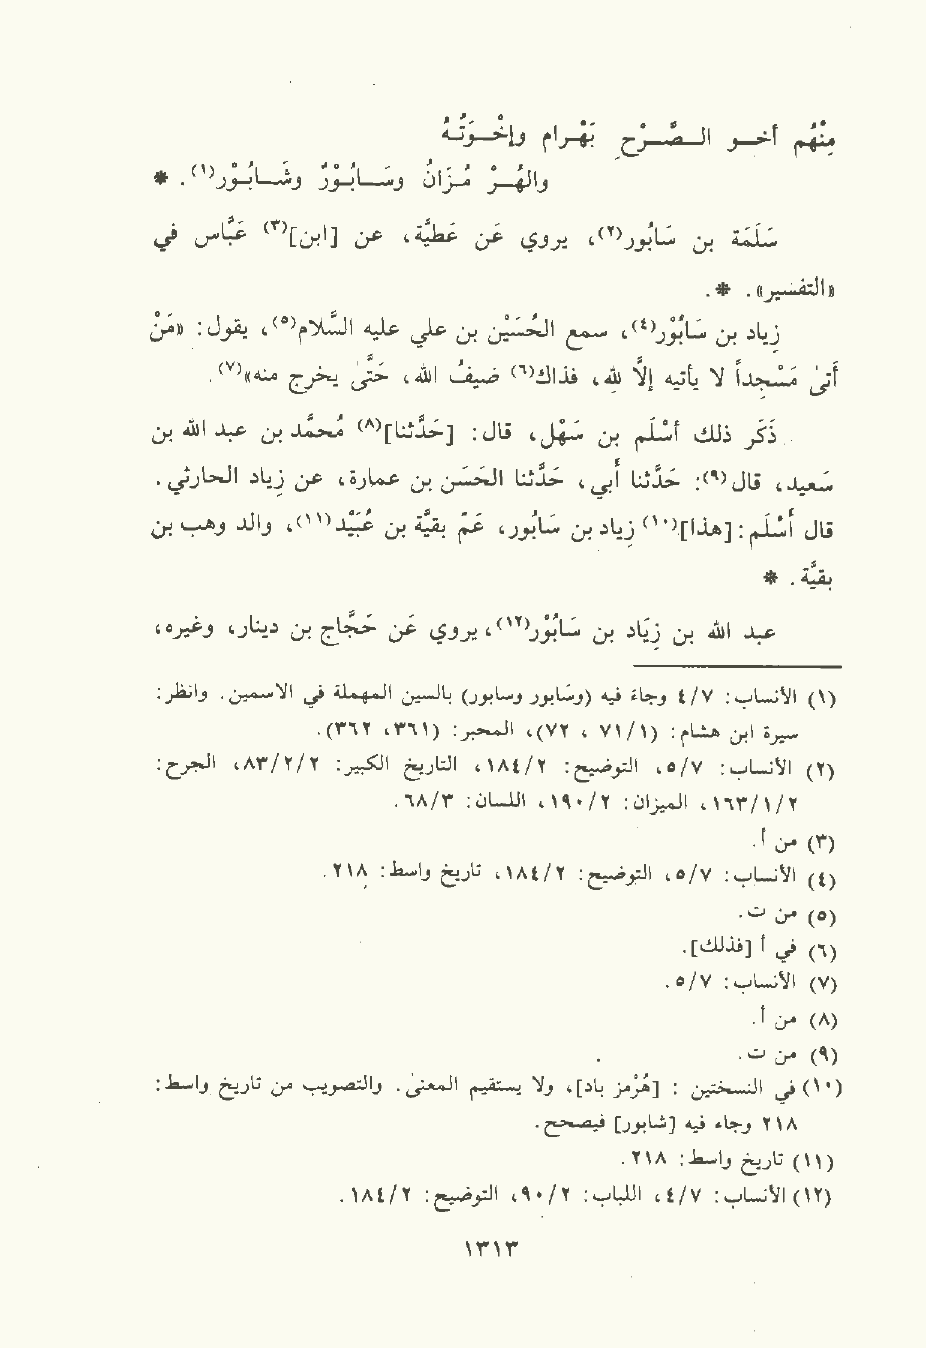 مِنْهُم أَخــو الصَّــرْحِ بَهْــرام وإخْــوَتُــهُ
والهُــرْ مُــزَانُ وسَــابُــوْرٌ وشَــابُــوْر(١). *
سَلَمَة بن سَابُور(٢)، يروي عَن عَطيَّة، عن [ابن](٣) عَبَّاس في
«التفسير». *.
زِياد بن سَابُوْر(٤)، سمع الحُسَيْن بن علي عليه السَّلام(٥)، يقول: «مَنْ
أتىٰ مَسْجِداً لا يأتيه إلاَّ لِله، فذاك(٦) ضيفُ الله، حَتَّىٰ يخرج منه»(٧).
ذَكَر ذلك أَسْلَم بن سَهْل، قال: [حَدَّثنا](٨) مُحمَّد بن عبد الله بن
سَعيد، قال(٩): حَدَّثنا أَبي، حَدَّثنا الحَسَن بن عمارة، عن زِياد الحارثي.
قال أَسْلَم: [هذا](١٠) زِياد بن سَابُور، عَمّ بقيَّة بن عُبَيْد(١١)، والد وهب بن
بقيَّة. *
عبد الله بن زِيَاد بن سَابُوْر(١٢)، يروي عَن حَجَّاج بن دينار، وغيره،
(١) الأنساب: ٤/٧ وجاء فيه (وسَابور وسابور) بالسين المهملة في الاسمين. وانظر:
سيرة ابن هشام: (٧١/١ ، ٧٢)، المحبر: (٣٦١، ٣٦٢).
(٢) الأنساب: ٥/٧، التوضيح: ١٨٤/٢، التاريخ الكبير: ٨٣/٢/٢، الجرح:
١٦٣/١/٢، الميزان: ١٩٠/٢، اللسان: ٦٨/٣.
(٣) من أ.
(٤) الأنساب: ٥/٧، التوضيح: ١٨٤/٢، تاريخ واسط: ٢١٨.
(٥) من ت.
(٦) في أ [فذلك].
(٧) الأنساب: ٥/٧.
(٨) من أ.
(٩) من ت.
(١٠) في النسختين : [هُرْمز باد]، ولا يستقيم المعنىٰ. والتصويب من تاريخ واسط:
٢١٨ وجاء فيه [شابور] فيصحح.
(١١) تاريخ واسط: ٢١٨.
(١٢) الأنساب: ٤/٧، اللباب: ٩٠/٢، التوضيح: ١٨٤/٢.
١٣١٣